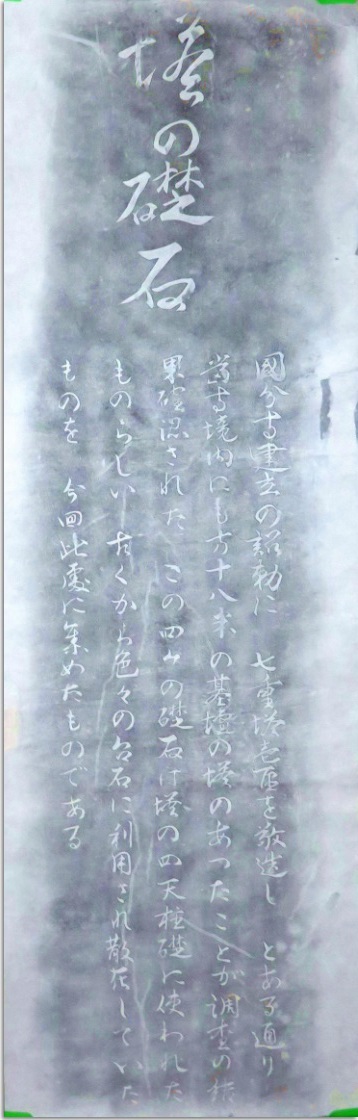 塔の礎石
國分寺建立の詔勅に 七重塔壱区を敬造し とある通り
当寺境内にも方十八米の基壇の塔のあったことが調査の結
果確認された この四ケの礎石は塔の四天柱礎に使われた
ものらしい 古くから色々の台石に利用され散在していた
ものを 今回此處に集めたものである